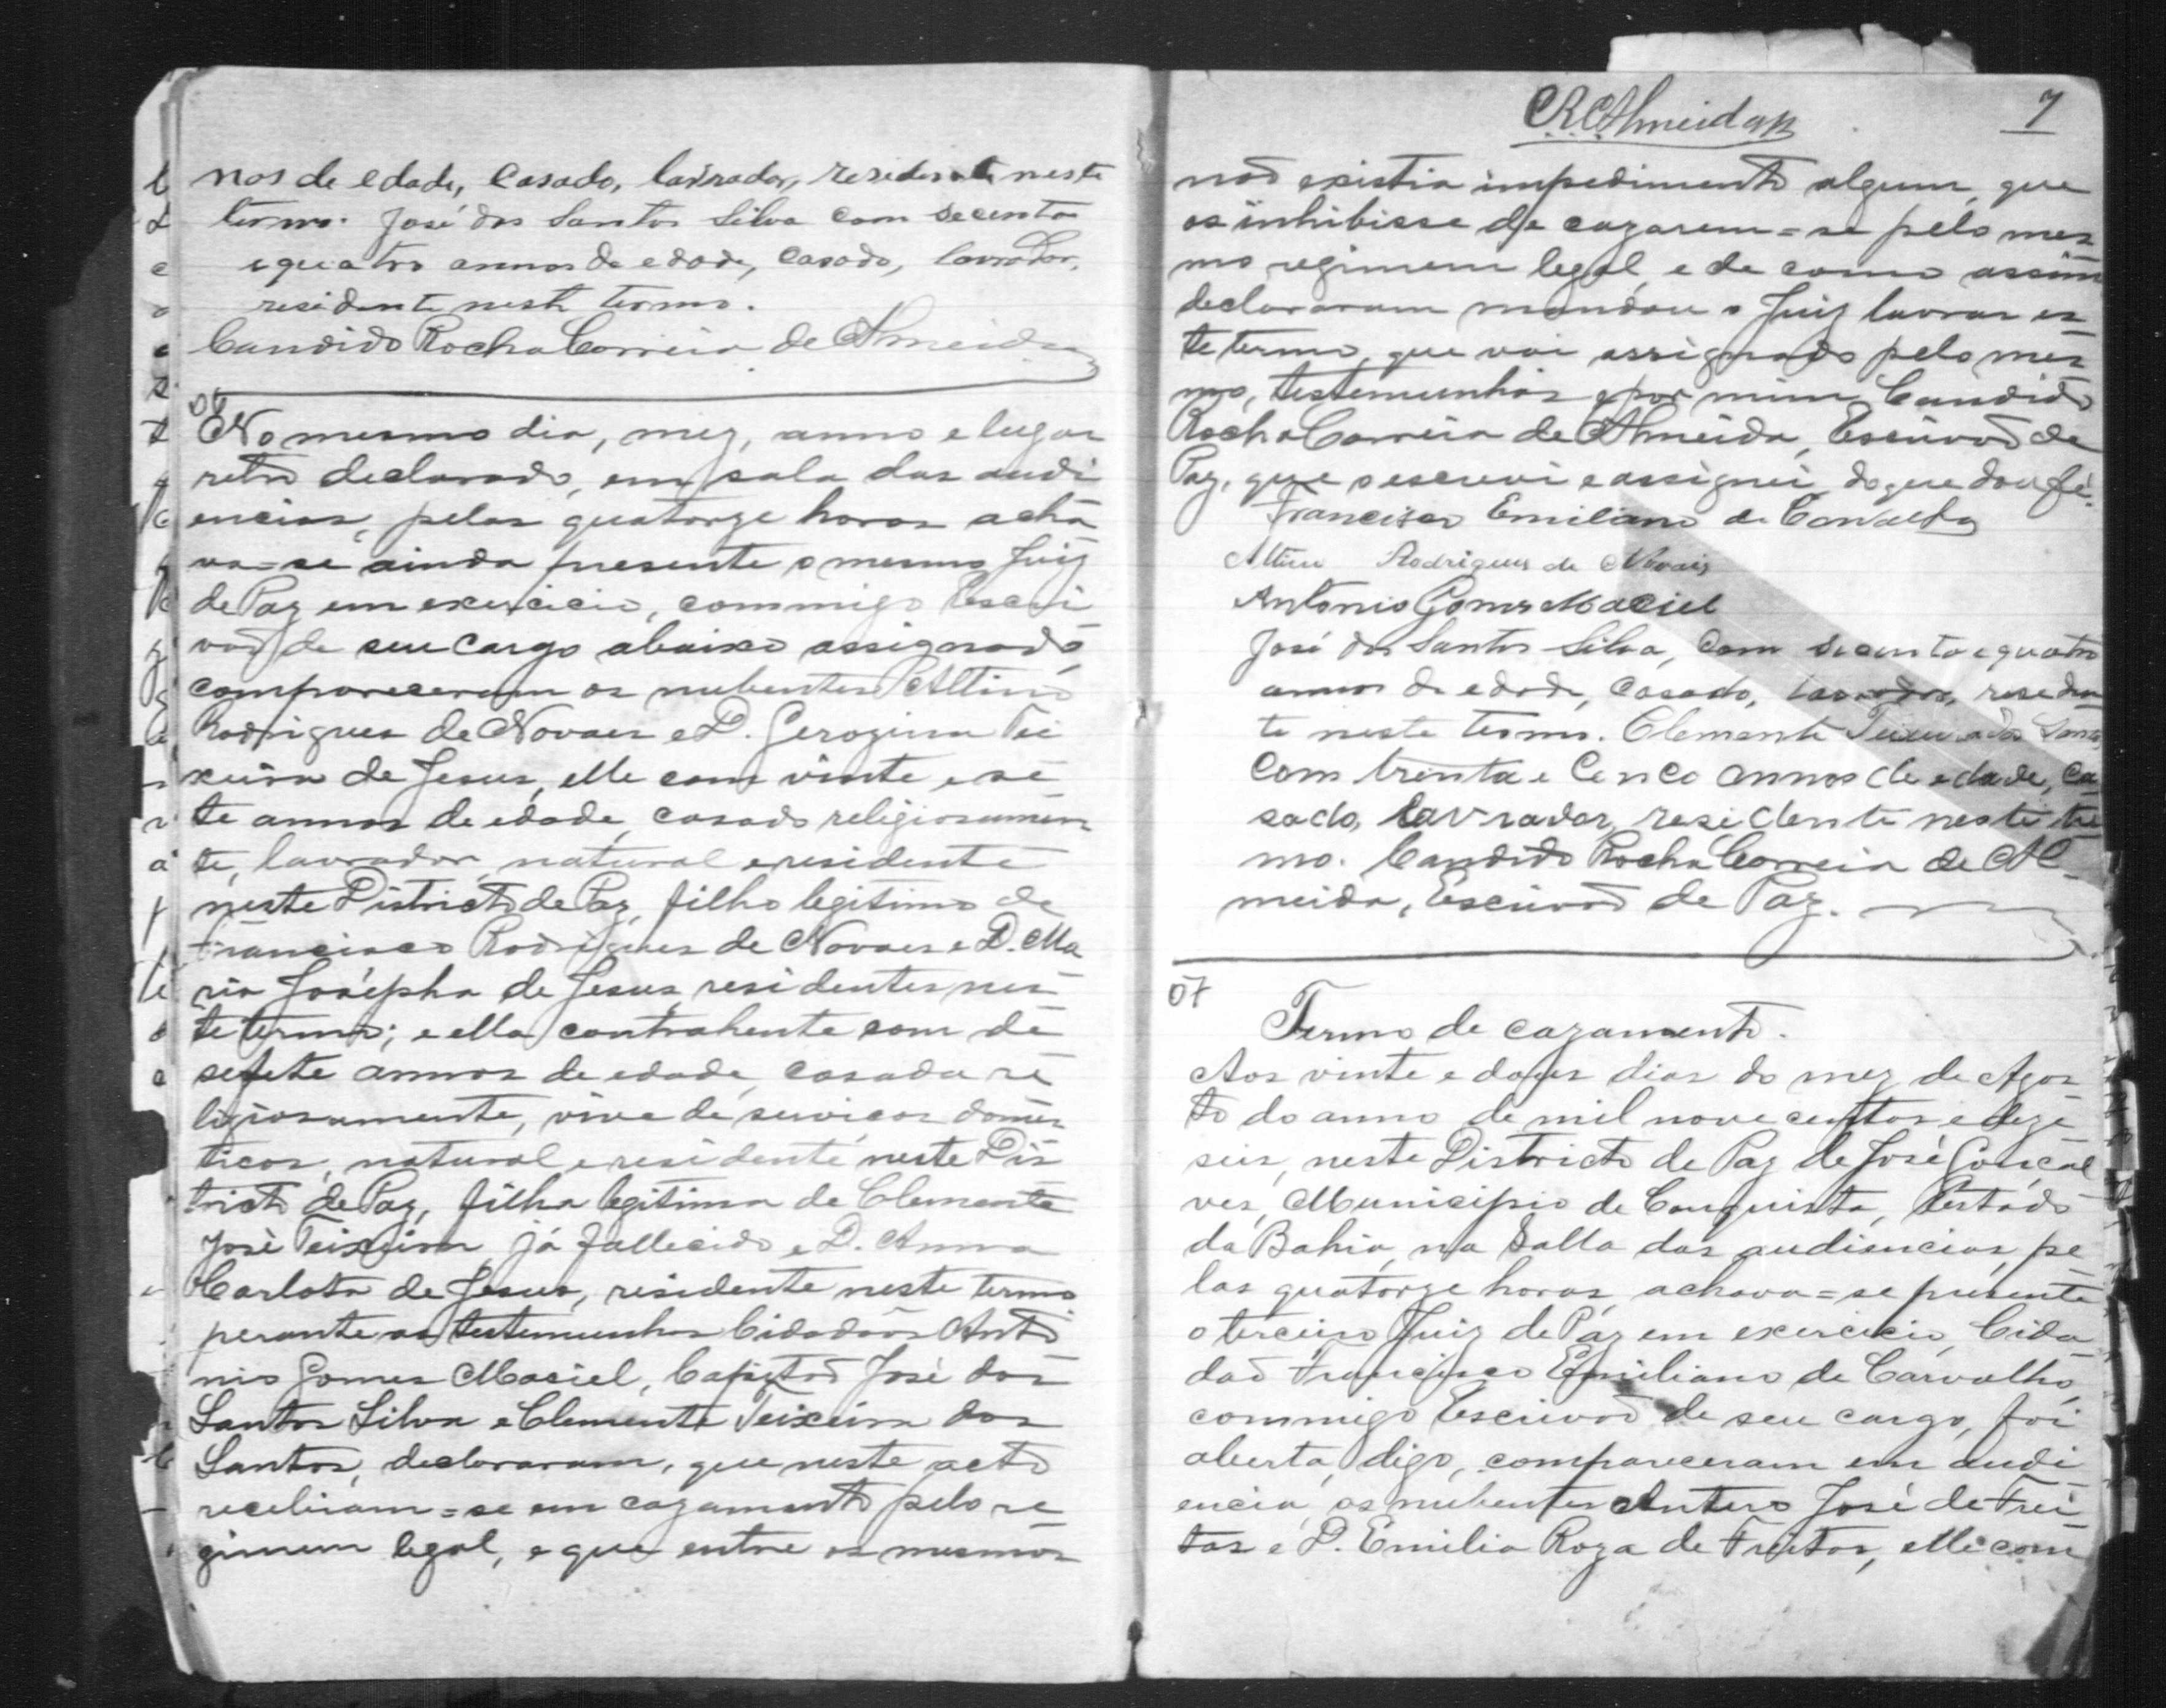 nos de edade, casado, lavrador, residente neste
termo. José dos Santos Silva com secenta
e quatro annos de edade, casado, lavrador,
residente neste termo.
Candido Rocha Correia de Almeida
06
No mesmo dia, mez, anno e lugar
retro declarado, em sala das audi
encias, pelas quatorze horas acha
va=se ainda presente o mesmo Juiz
de Paz em exercicio, commigo Escri
vaõ de seu cargo abaixo assignado,
compareceram os nubentes Altino
Rodrigues de Novaes e D. Gerozina Tei
xeira de Jesus, elle com vinte e se
te annos de edade, casado religiosamen
te, lavrador, natural e residente
neste Districto de Paz, filho legitimo de
Francisco Rodrigues de Novaes e D. Ma
ria Josépha de Jesus, residentes nes
te termo; e ella contrahente com de
sesete annos de edade, casada re
ligiosamente, vive de serviços domes
ticos, natural e residente neste Dis
tricto de Paz, filha legitima de Clemente
José Teixeira já fallecido e D. Anna
Carlota de Jesus, residente neste termo
perante as testemunhas Cidadaõs Anto
nio Gomes Maciel, Capitaõ José dos
Santos Silva e Clemente Teixeira dos
Santos, declararam, que neste acto
recebiam=se em cazamento pelo re
gimem legal, e que entre os mesmos
CRCAlmeida 7
naõ existia impedimento algum, que
os inhibisse de cazarem=se pelo mes
mo regimem legal, e de como assim
declararam mandou o Juiz lavrar es
te termo, que vai assignado pelo mes
mo, testemunhas e por mim Candido
Rocha Correia de Almeida, Escrivaõ de
Paz, que o escrevi e assignei, do que dou fé.
Francisco Emiliano de Carvalho
Altino Rodrigues de Novais
Antonio Gomes Maciel
José dos Santos Silva, com secenta e quatro
annos de edade, casado, lavrador, residen
te neste termo. Clemente Teixeira dos Santos
com trinta e cenco annos de edade, ca
sado, lavrador, residente neste ter
mo. Candido Rocha Correia de Al
meida, Escrivaõ de Paz.
07
Termo de cazamento.
Aos vinte e doues dias do mez de Agos
to do anno de mil nove centos e deze
seis, neste Districto de Paz de José Gonçal
ves, Municipio de Conquista, Estado
da Bahia, na Salla das audiencias, pe
las quatorze horas, achava=se presente
o terceiro Juiz de Paz em exercicio, Cida
daõ Francisco Emiliano de Carvalho,
commigo Escrivaõ de seu cargo, foi
aberta, digo, compareceram em audi
encia, os nubentes Antero José de Frei
tas e D. Emilia Roza de Freitas, elle com